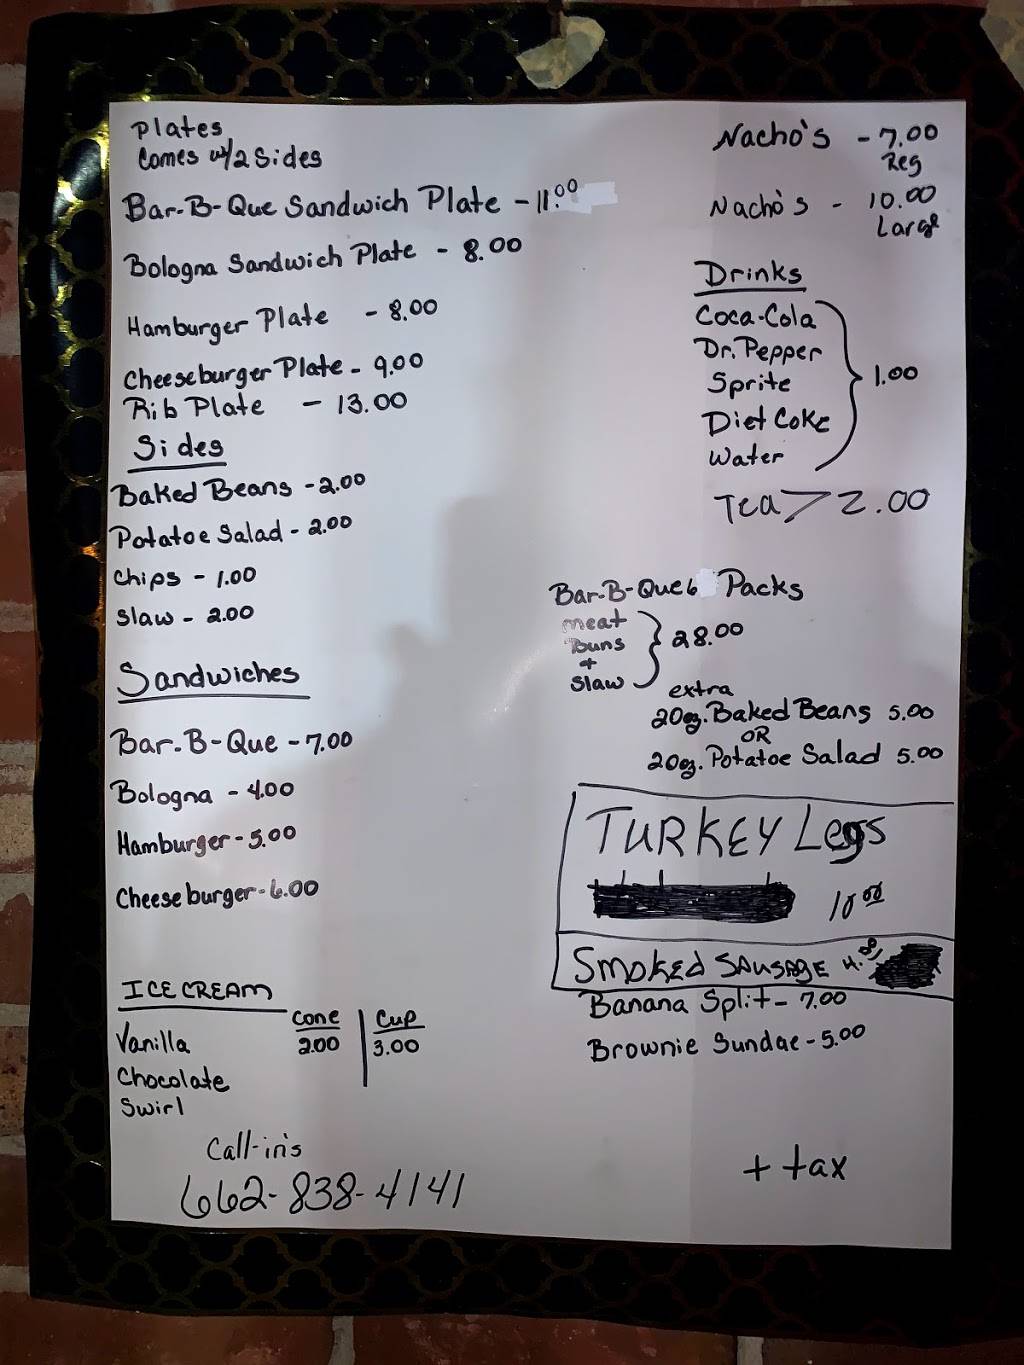 Plates
Comes w/2 Sides
Bar-B-Que Sandwich Plate - 11.00
Bologna Sandwich Plate - 8.00
Hamburger Plate - 8.00
Cheeseburger Plate - 9.00
Rib Plate - 13.00
Sides
Baked Beans - 2.00
Potatoe Salad - 2.00
Chips - 1.00
Slaw - 2.00
Sandwiches
Bar-B-Que - 7.00
Bologna - 4.00
Hamburger - 5.00
Cheeseburger - 6.00
ICE CREAM
Cone Cup
Vanilla 2.00 3.00
Chocolate
Swirl
Call-in's
662-838-4141
Nacho's - 7.00
Reg
Nacho's - 10.00
Large
Drinks
Coca-Cola
Dr. Pepper
Sprite 1.00
Diet Coke
Water
Tea > 2.00
Bar-B-Que 6 Packs
meat
Buns 28.00
+
Slaw
extra
20oz. Baked Beans 5.00
OR
20oz. Potatoe Salad 5.00
TURKEY Legs
10.00
SMOKED SAUSAGE
Banana Split - 7.00
Brownie Sundae - 5.00
+ tax